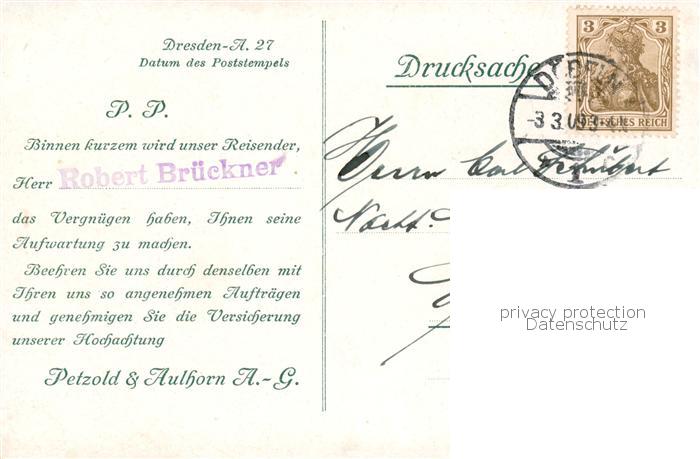 Dresden-A. 27
Datum des Poststempels
P. P.
Binnen kurzem wird unser Reisender,
Herr Robert Brückner
das Vergnügen haben, Ihnen seine
Aufwartung zu machen.
Beehren Sie uns durch denselben mit
Ihren uns so angenehmen Aufträgen
und genehmigen Sie die Versicherung
unserer Hochachtung
Petzold & Aulhorn A.-G.
Drucksache
3 3
DEUTSCHES REICH
DÖBELN
-3 3 09
1
Herrn Carl
Nachf.
privacy protection
Datenschutz